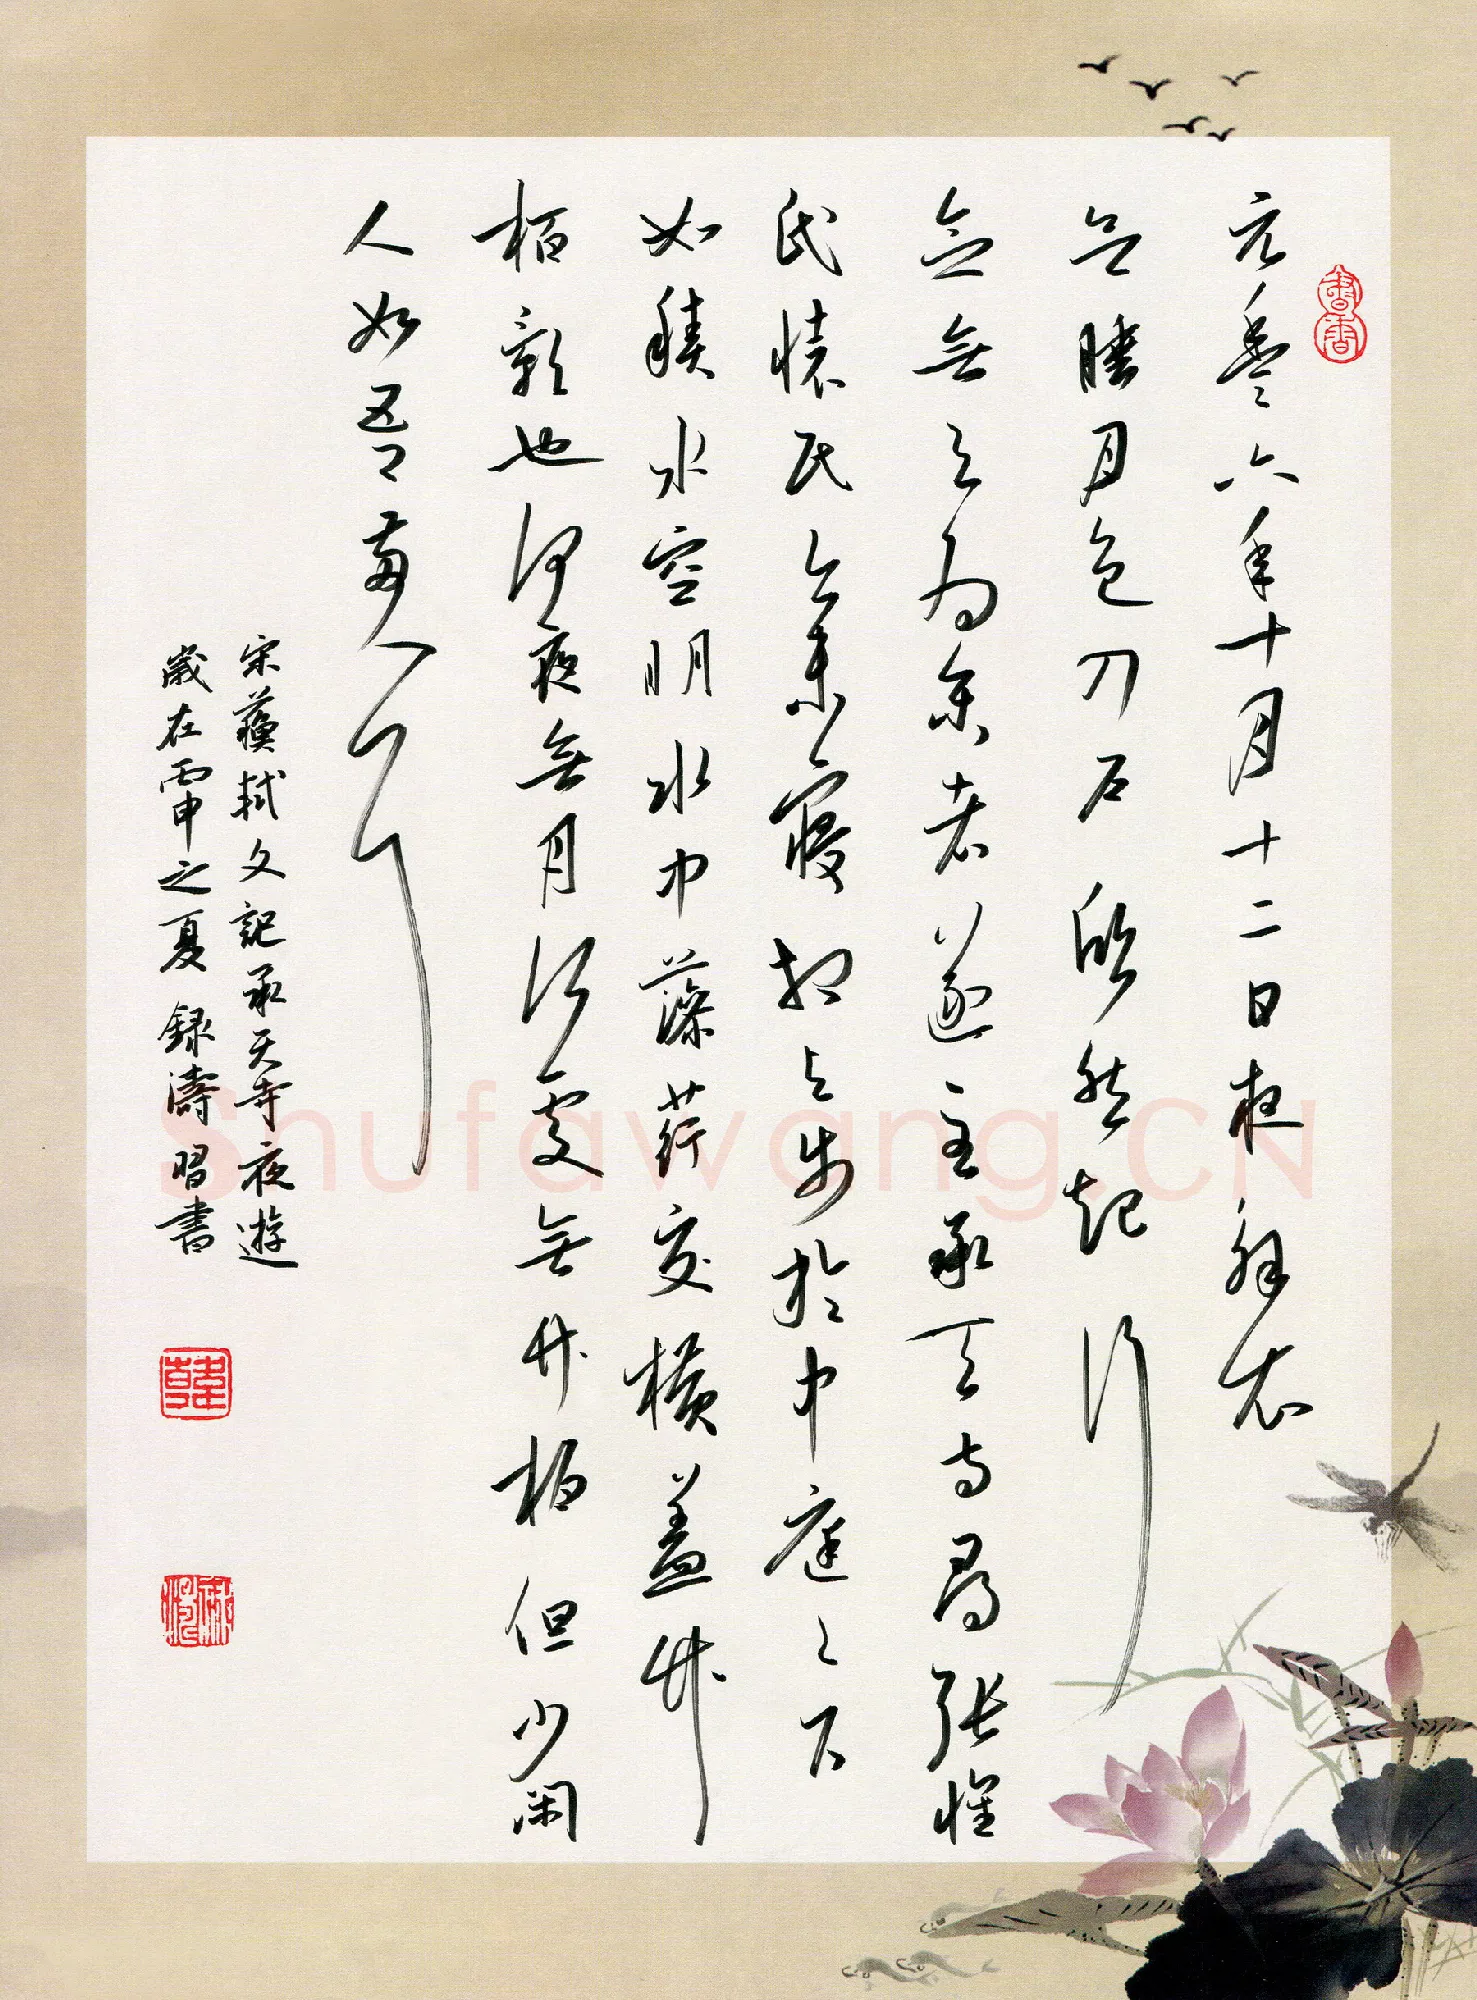 書香
元豐六年十月十二日夜解衣
欲睡月色入户欣然起行
念無与为樂者遂至承天寺尋張懷
民懷民亦未寢相与步於中庭々下
如積水空明水中藻荇交横蓋竹
柏影也何夜無月何處無竹柏但少閑
人如吾兩人耳
宋蘇軾文記承天寺夜遊
歲在丙申之夏録濤習書
韓
Shufawang.CN